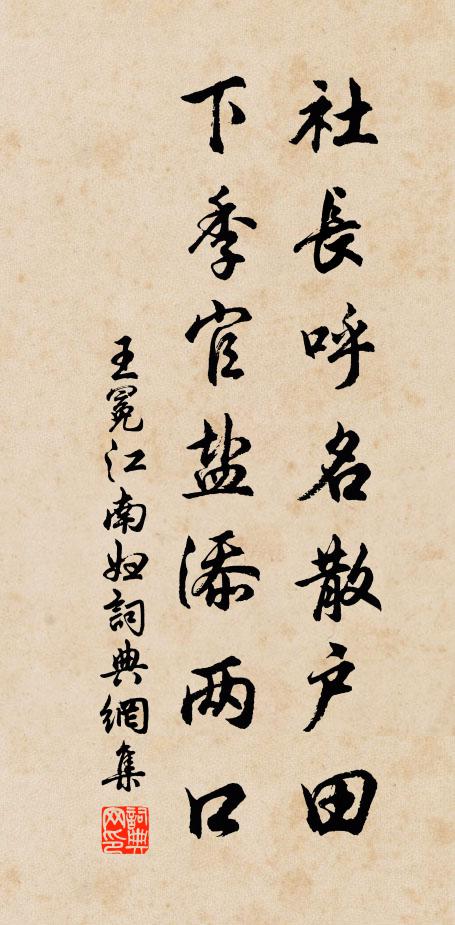 社長呼名散户田
下季官盐添两口
王冕江南妇詞典網集
詞典网印